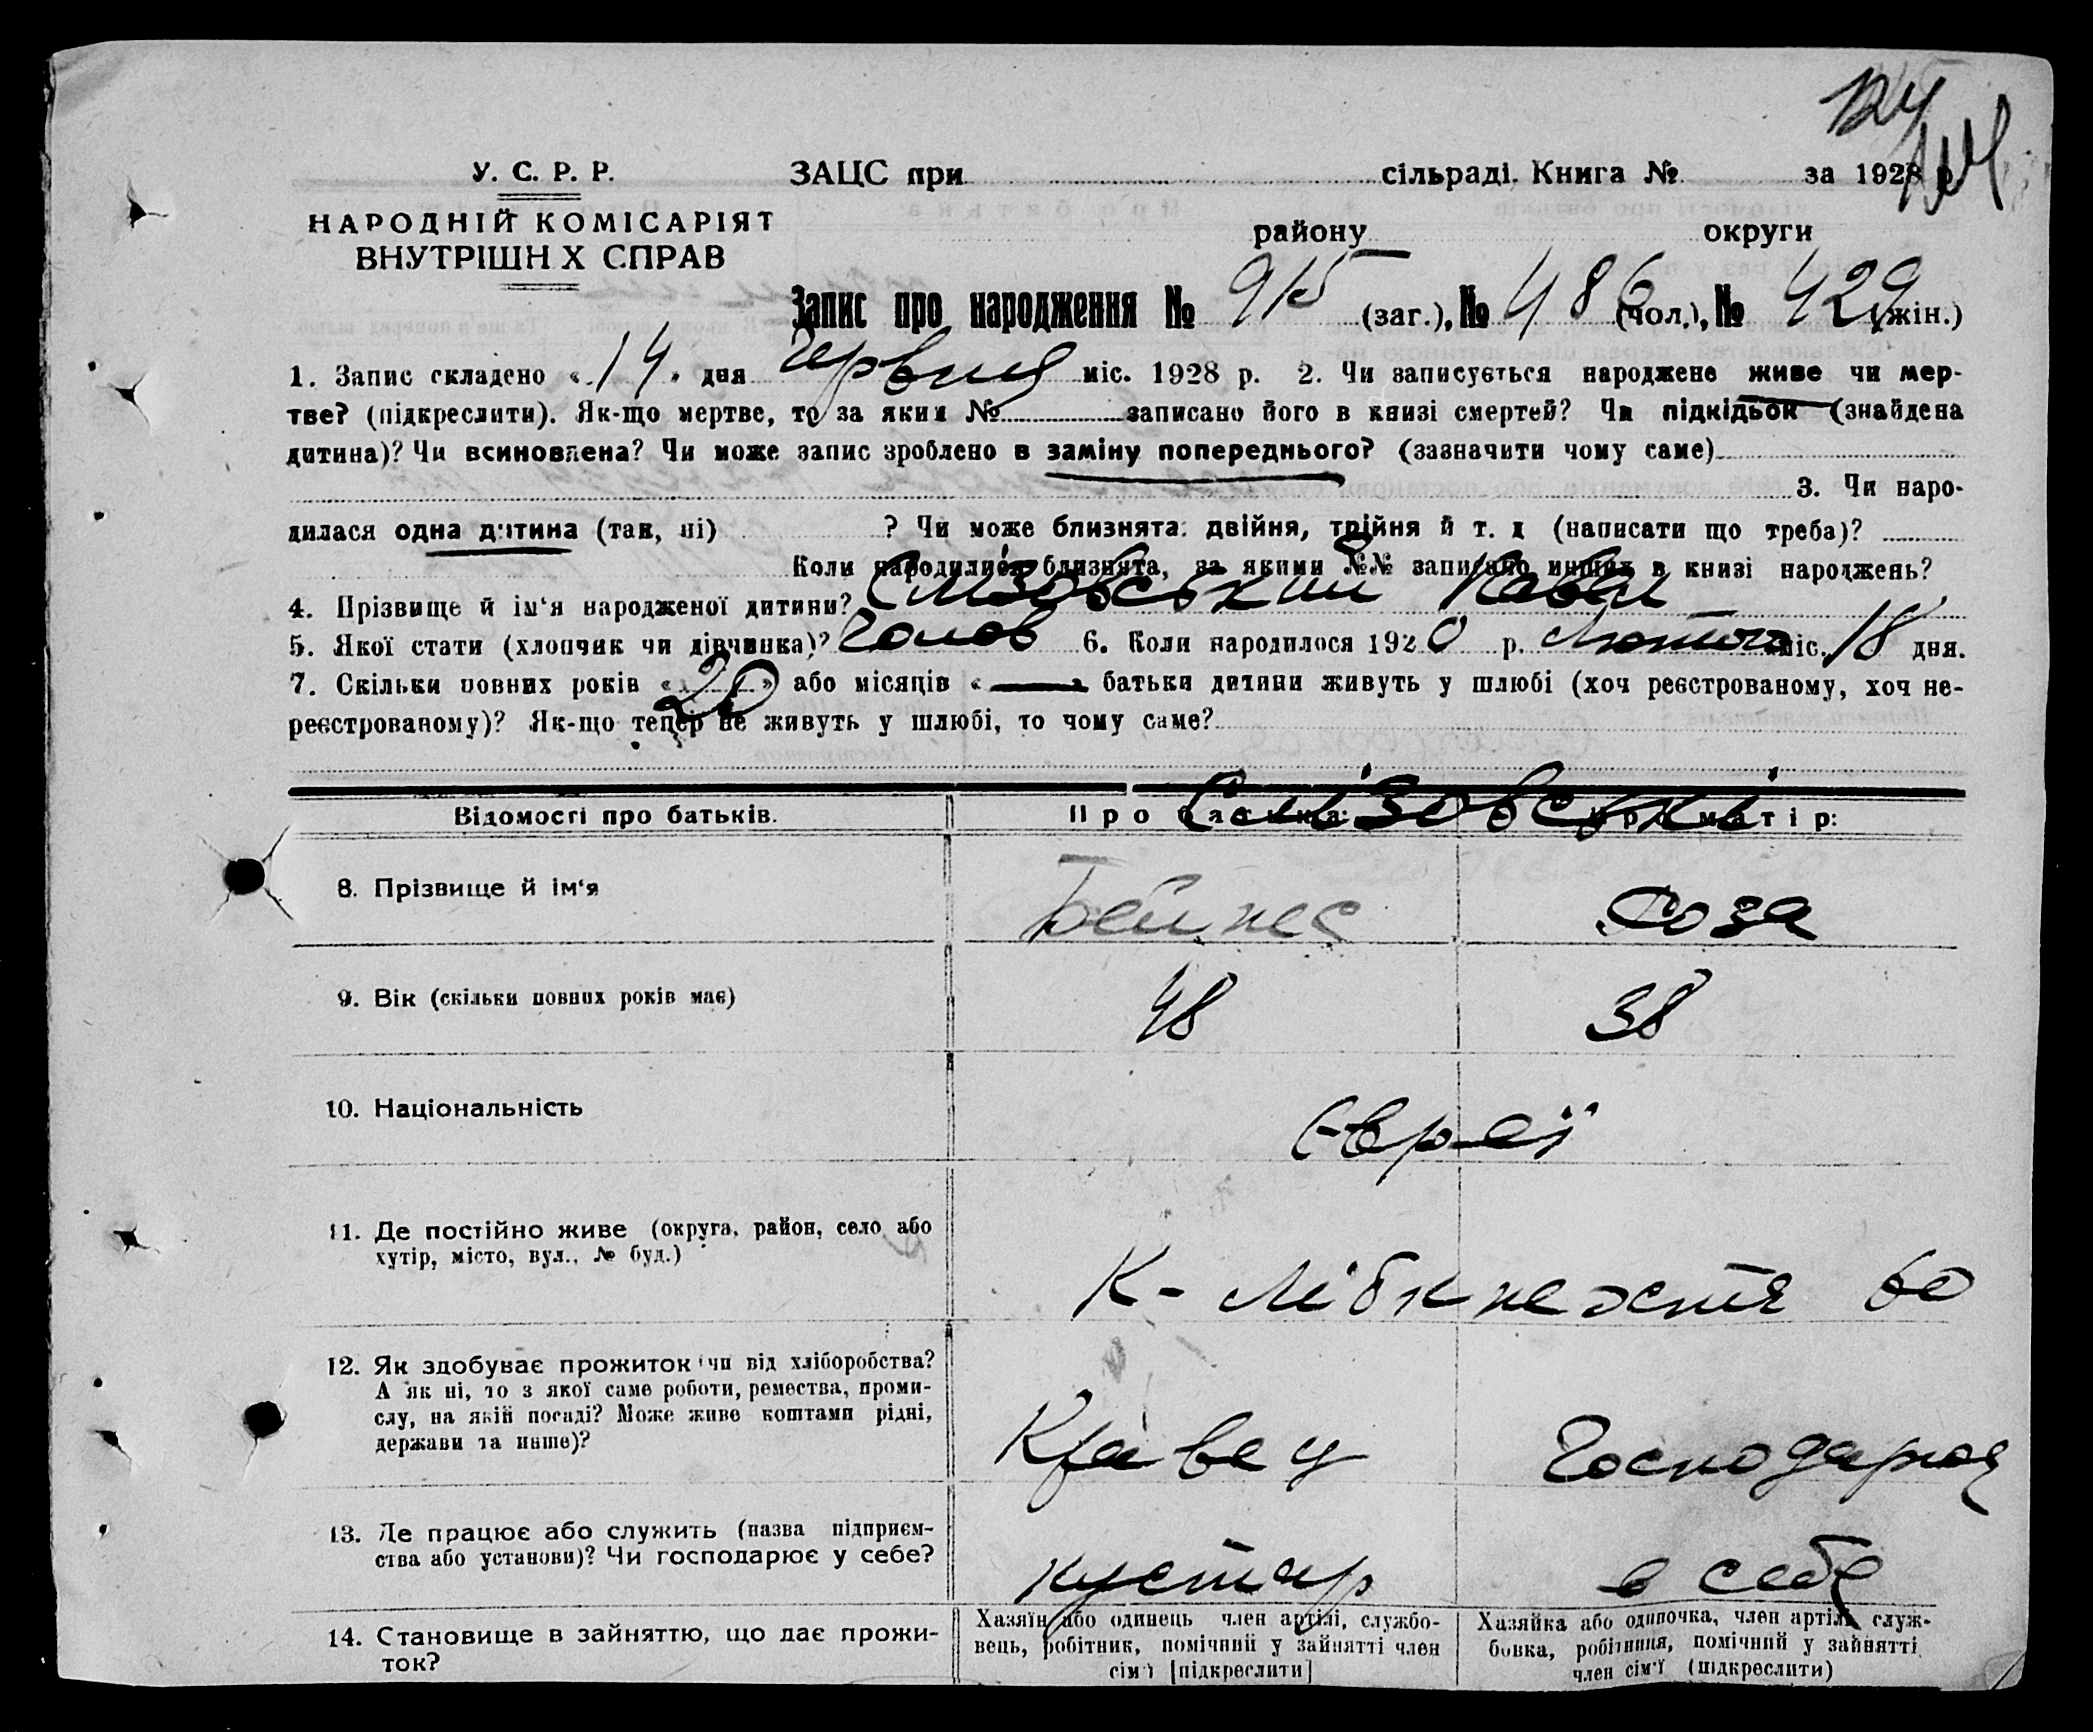 124
У. С. Р. Р.
ЗАЦС при сільраді. Книга № за 1928 р.
НАРОДНІЙ КОМІСАРІЯТ
ВНУТРІШН Х СПРАВ
району округи
Запис про народження № 915 (заг.), № 486 (чол.), № 429 (жін.)
1. Запис складено «14» дня червня міс. 1928 р. 2. Чи записується народжене живе чи мер-
тве? (підкреслити). Як-що мертве, то за яким № записано його в книзі смертей? Чи підкідьок (знайдена
дитина)? Чи всиновлена? Чи може запис зроблено в заміну попереднього? (зазначити чому саме)
3. Чи наро-
дилася одна дитина (так, ні) ? Чи може близнята: двійня, трійня й т. д (написати що треба)?
Коли народилися близнята, за якими №№ записано инших в книзі народжень?
4. Прізвище й ім‘я народженої дитини?
5. Якої стати (хлопчик чи дівчинка)? Чолов 6. Коли народилося 1920 р. Лютого міс. 18 дня.
7. Скільки повних років «20» або місяців « » батьки дитини живуть у шлюбі (хоч реєстрованому, хоч не-
реєстрованому)? Як-що тепер не живуть у шлюбі, то чому саме?
Відомості про батьків. Про батька: Про матір:
8. Прізвище й ім‘я
9. Вік (скільки повних років має) 48 38
10. Національність Євреї
11. Де постійно живе (округа, район, село або
хутір, місто, вул., № буд.)
К- Лібкнехтя 60
12. Як здобуває прожиток чи від хліборобства?
А як ні, то з якої саме роботи, ремества, проми-
слу, на якій посаді? Може живе коштами рідні,
держави та инше)?
Кравец Господарює
13. Де працює або служить (назва підприєм-
ства або установи)? Чи господарює у себе?
кустар в себе
14. Становище в зайняттю, що дає прожи-
ток?
Хазяїн або одинець член артілі, службо-
вець, робітник, помічний у зайнятті член
сім‘ї [підкреслити]
Хазяйка або одиночка, член артілі, служ-
бовка, робітниця, помічний у зайнятті
член сім‘ї (підкреслити)